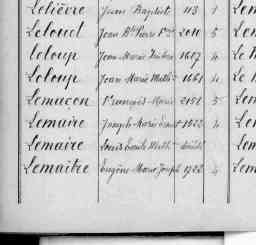 Lelièvre Jean Baptist 113 1
Leloud Jean Bte Pierre 2011 5 Lem
Leloup Jean Marie 1687 4 Le M
Leloup Jean Marie Math 1661 4 Le M
Lemaçon François Marie 2151 5 Lem
Lemaire Joseph Marie 1822 4 Lem
Lemaire Louis Emile Math Lem
Lemaître Eugène Marie Joseph 1922 4 Lem